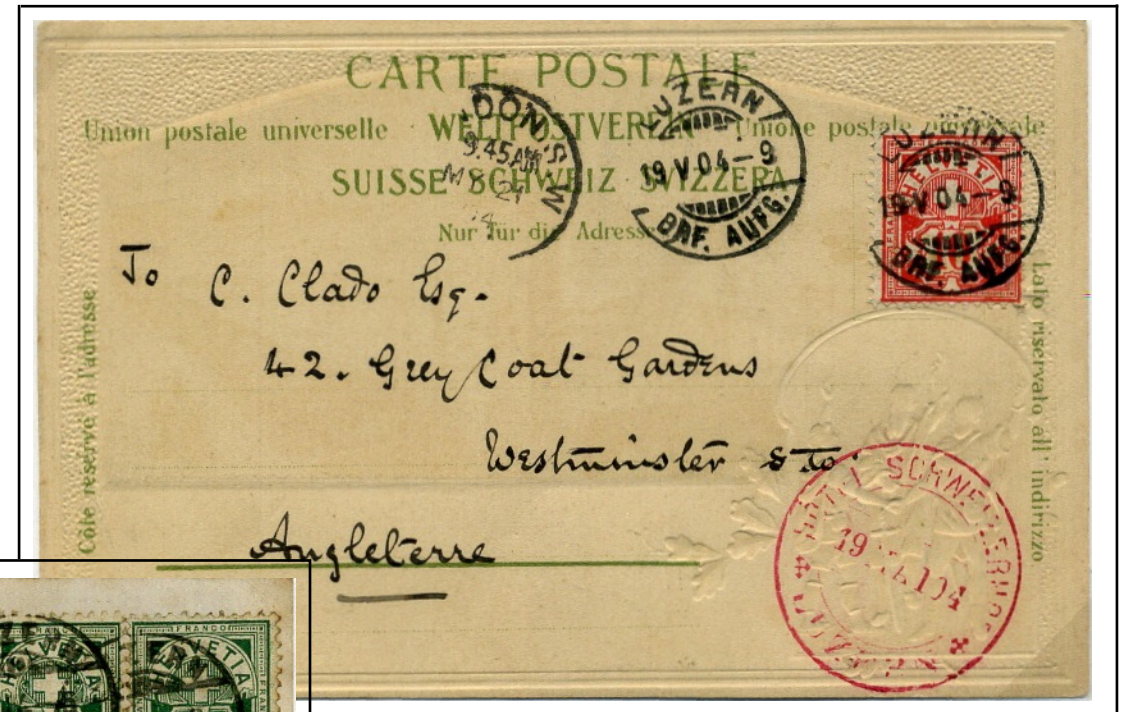 CARTE POSTALE
Union postale universelle · WELTPOSTVEREIN · Unione postale universale
SUISSE SCHWEIZ SVIZZERA
Nur für die Adresse
Côté réservé à l'adresse
Lato riservato all' indirizzo
LONDON. S.W
9.45 AM
MY 21
LUZERN
19 V 04 – 9
BRF. AUFG.
LUZERN
19 V 04 – 9
BRF. AUFG.
FRANCO
HELVETIA
10
To
C. Clado Esq.
42. Grey Coat Gardens
Westminster
Angleterre
HÔTEL SCHWEIZERHOF
19 MAI 04
LUZERN
FRANCO
HELVETIA
HELVETIA